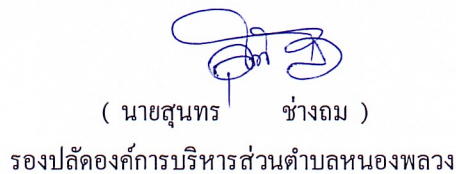 ( นายสุนทร ช่างถม )
รองปลัดองค์การบริหารส่วนตำบลหนองพลวง